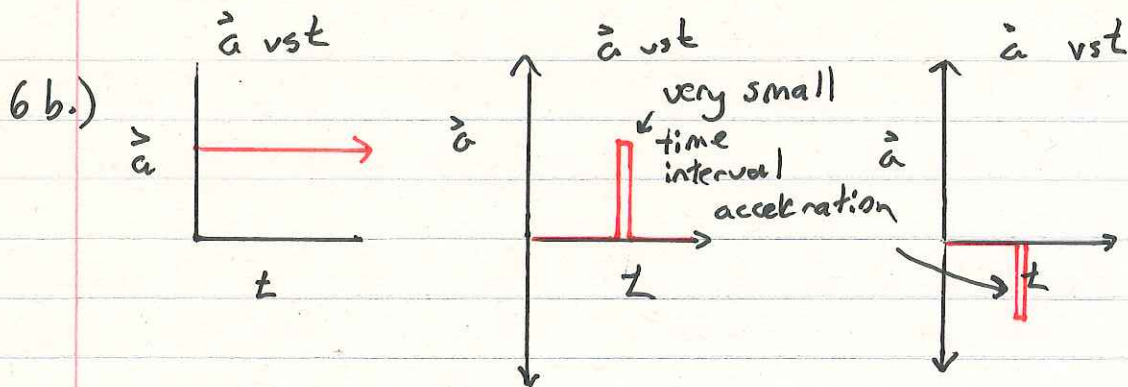 6 b.)
a⃗ vs t
a⃗
t
a⃗ vs t
a⃗
very small
time
interval
acceleration
t
a⃗ vs t
a⃗
t